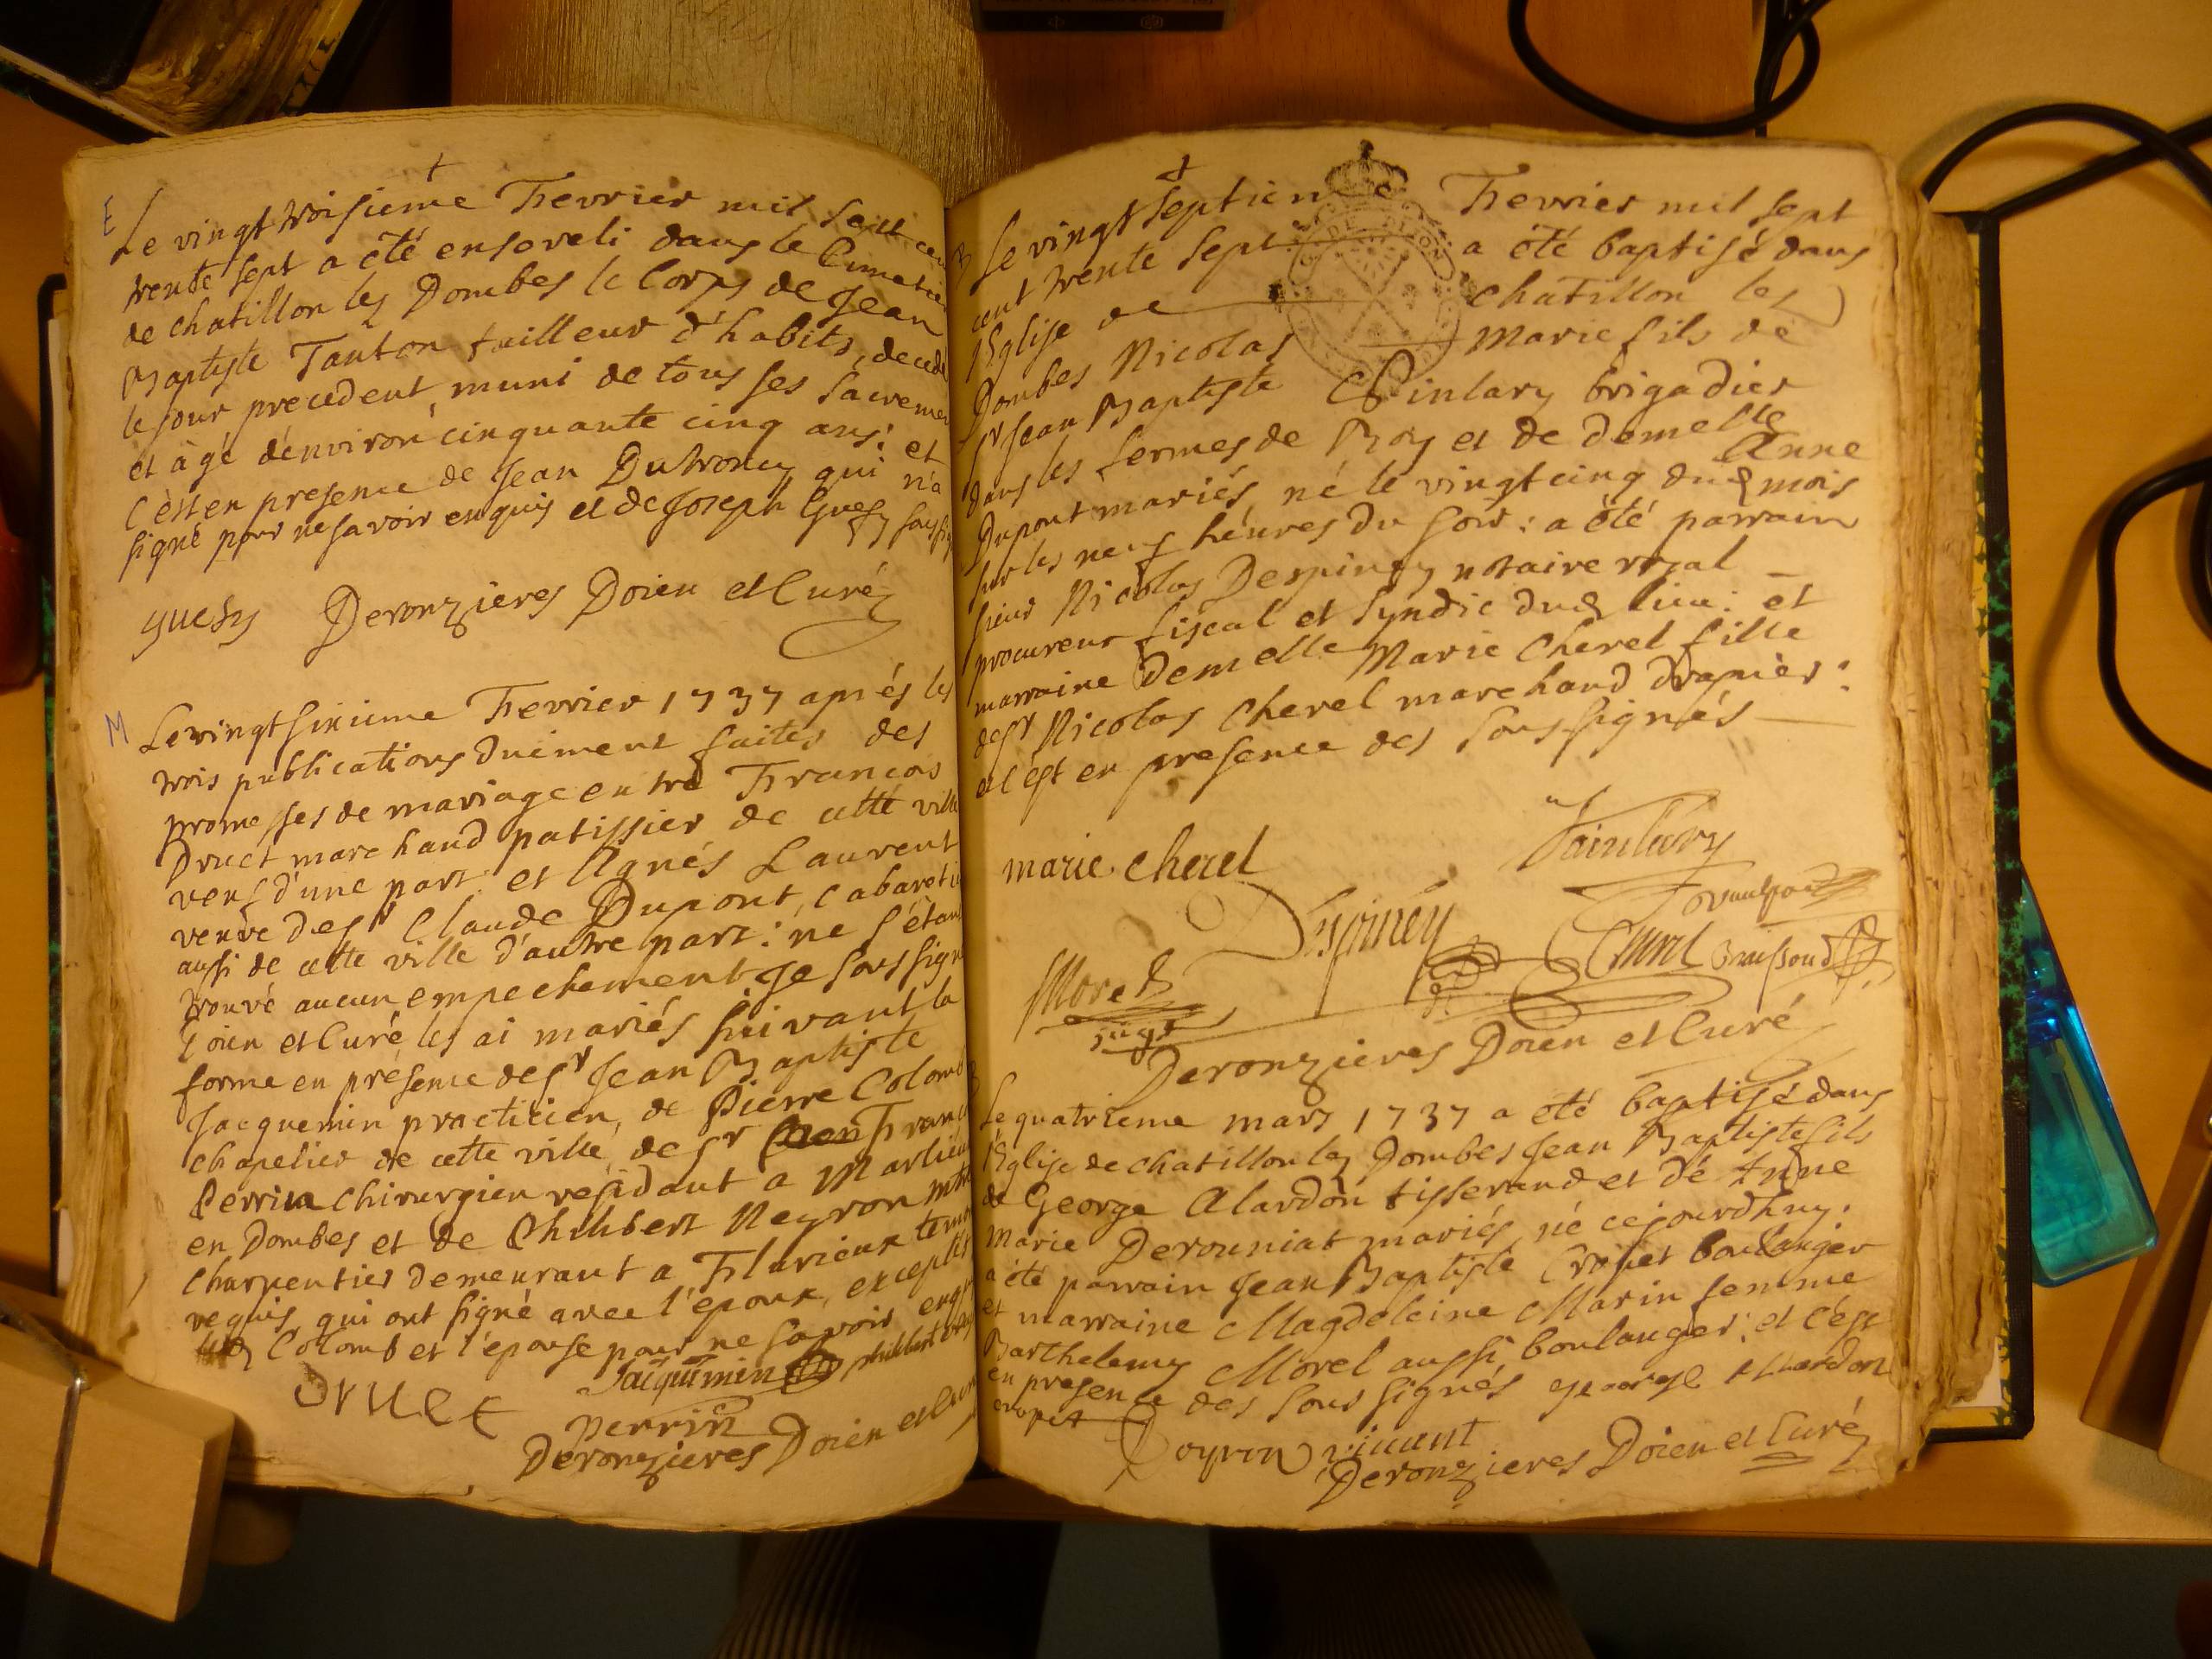 E
Le vingt troisieme Fevrier mil sept cen
trente sept a été enseveli dans le Cimetie
de chatillon les Dombes le Corps de Jean
Baptiste Tanton tailleur d'habits, decedé
le jour precedent, muni de tous ses Sacremen
et àgé d'environ cinquante cinq ans: et
C'est en presence de Jean Dutroncy qui n'a
signé pour ne savoir enquis et de Joseph Guesy soussig
guesy Deronzieres Doien et Curé
M
Le vingt sixieme Fevrier 1737 aprés les
trois publications duëment faites des
promesses de mariage entre Francois
Druet marchand patissier de cette ville
veuf d'une part: et Agnés Laurent
veuve de sr Claude Dupont, Cabareti
aussi de cette ville d'autre part: ne s'étant
trouvé aucun empechement Je soussign
Doien et Curé les ai mariés suivant la
forme en présence de sr Jean Baptiste
Jacquemin practicien, de Pierre Colomb
chapelier de cette ville, de sr Franc
Perrin Chirurgien residant a Marlieu
en Dombes et de Philibert Neyron mtre
Charpentier demeurant a Flurieux temoi
requis, qui ont signé avec l'epoux, excepté
Colomb et l'épouse pour ne savoir enq
Druet Jacquemin philibert
perrin
Deronzieres Doien et Cur
B
Le vingt septieme Fevrier mil sept
cent trente sept a été baptisé dans
l'Eglise de chatillon les
Dombes Nicolas Marie fils de
sr Jean Baptiste Vinlary brigadier
dans les fermes de Roy et de demelle Anne
Dupont mariés, né le vingt cinq dud mois
sur les neuf héures du soir: a été parrain
sieur Nicolas Despiney notaire roial
procureur fiscal et Syndic dud lieu: et
marraine Demelle Marie Cherel fille
de sr Nicolas Cherel marchand drapier:
et c'est en presence des soussignés
marie cherel
Despiney
Cherel
Moret
juge
Deronzieres Doien et Curé
B
Le quatrieme mars 1737 a été baptisé dans
l'Eglise de chatillon les Dombes Jean Baptiste fils
de George Alardon tisserand et de Anne
Marie Derouniat mariés, né cejourdhuy:
a été parrain Jean Baptiste Cropet boulanger
et marraine Magdeleine Marin femme
Barthelemy Morel aussi boulanger: et c'est
en presence des soussignés george Allardon
cropet Poyron vincent
Deronzieres Doien et Curé